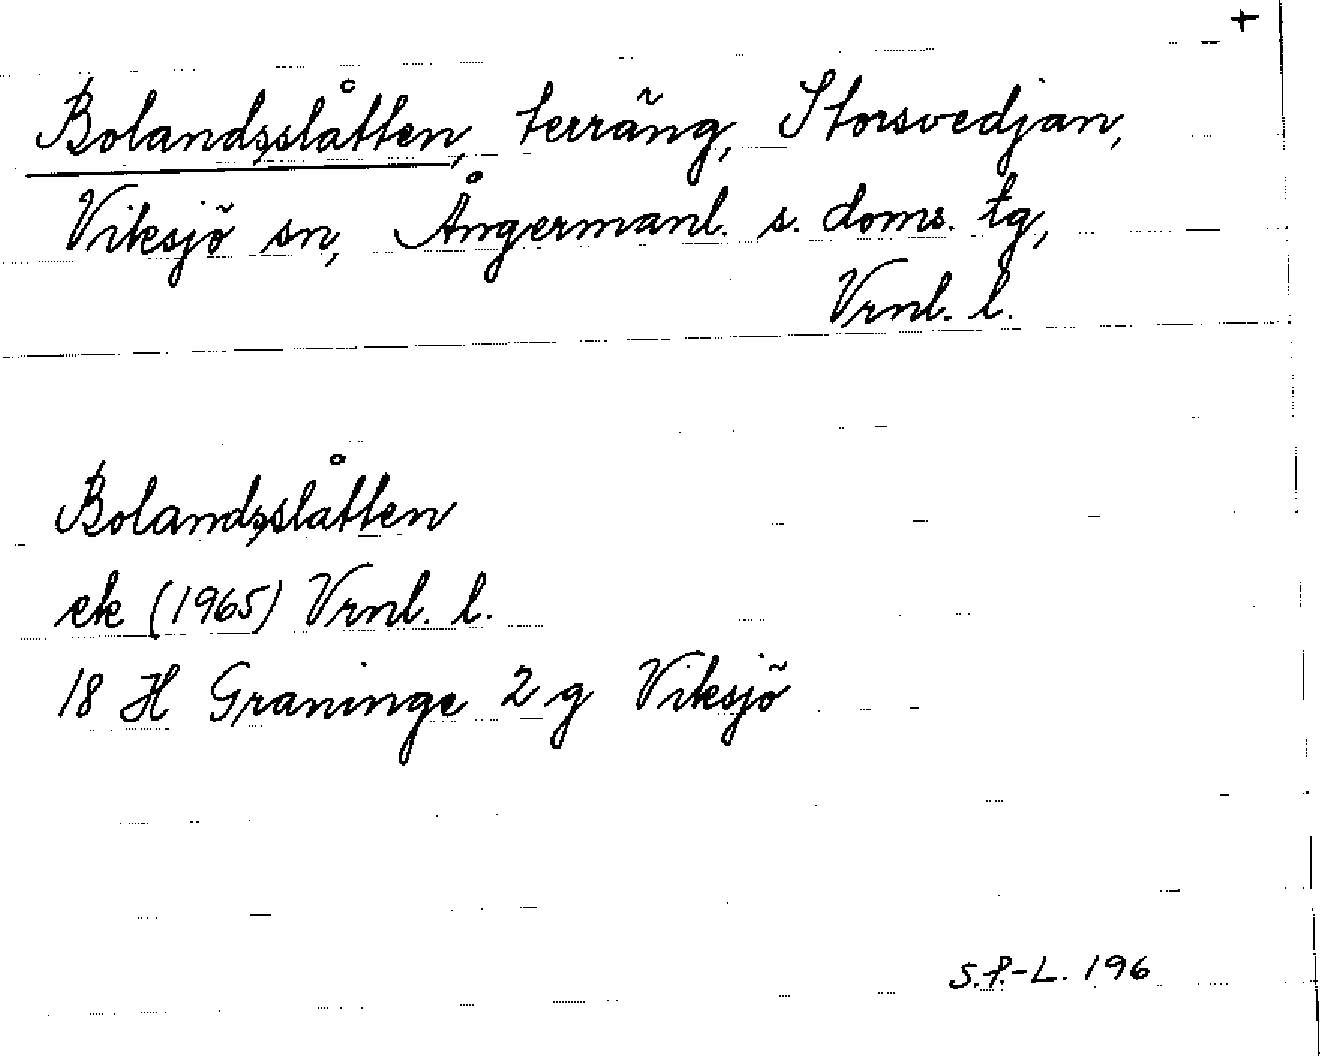 +
Bolandsslåtten, terräng, Storsvedjan,
Viksjö sn, Ångermanl. s. doms. tg,
Vrnl. l.
Bolandsslåtten
ek (1965) Vrnl. l.
18 H Graninge 2 g Viksjö
S.P.-L. 196